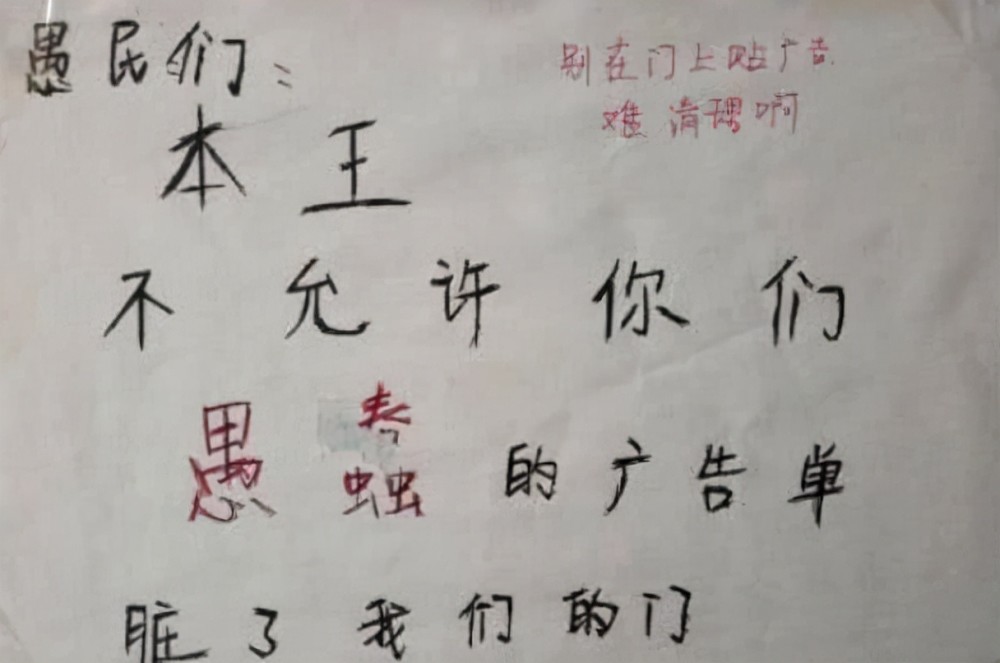 愚民们:
别在门上贴广告
难清理啊
本王
不允许你们
愚蠢的广告单
脏了我们的门